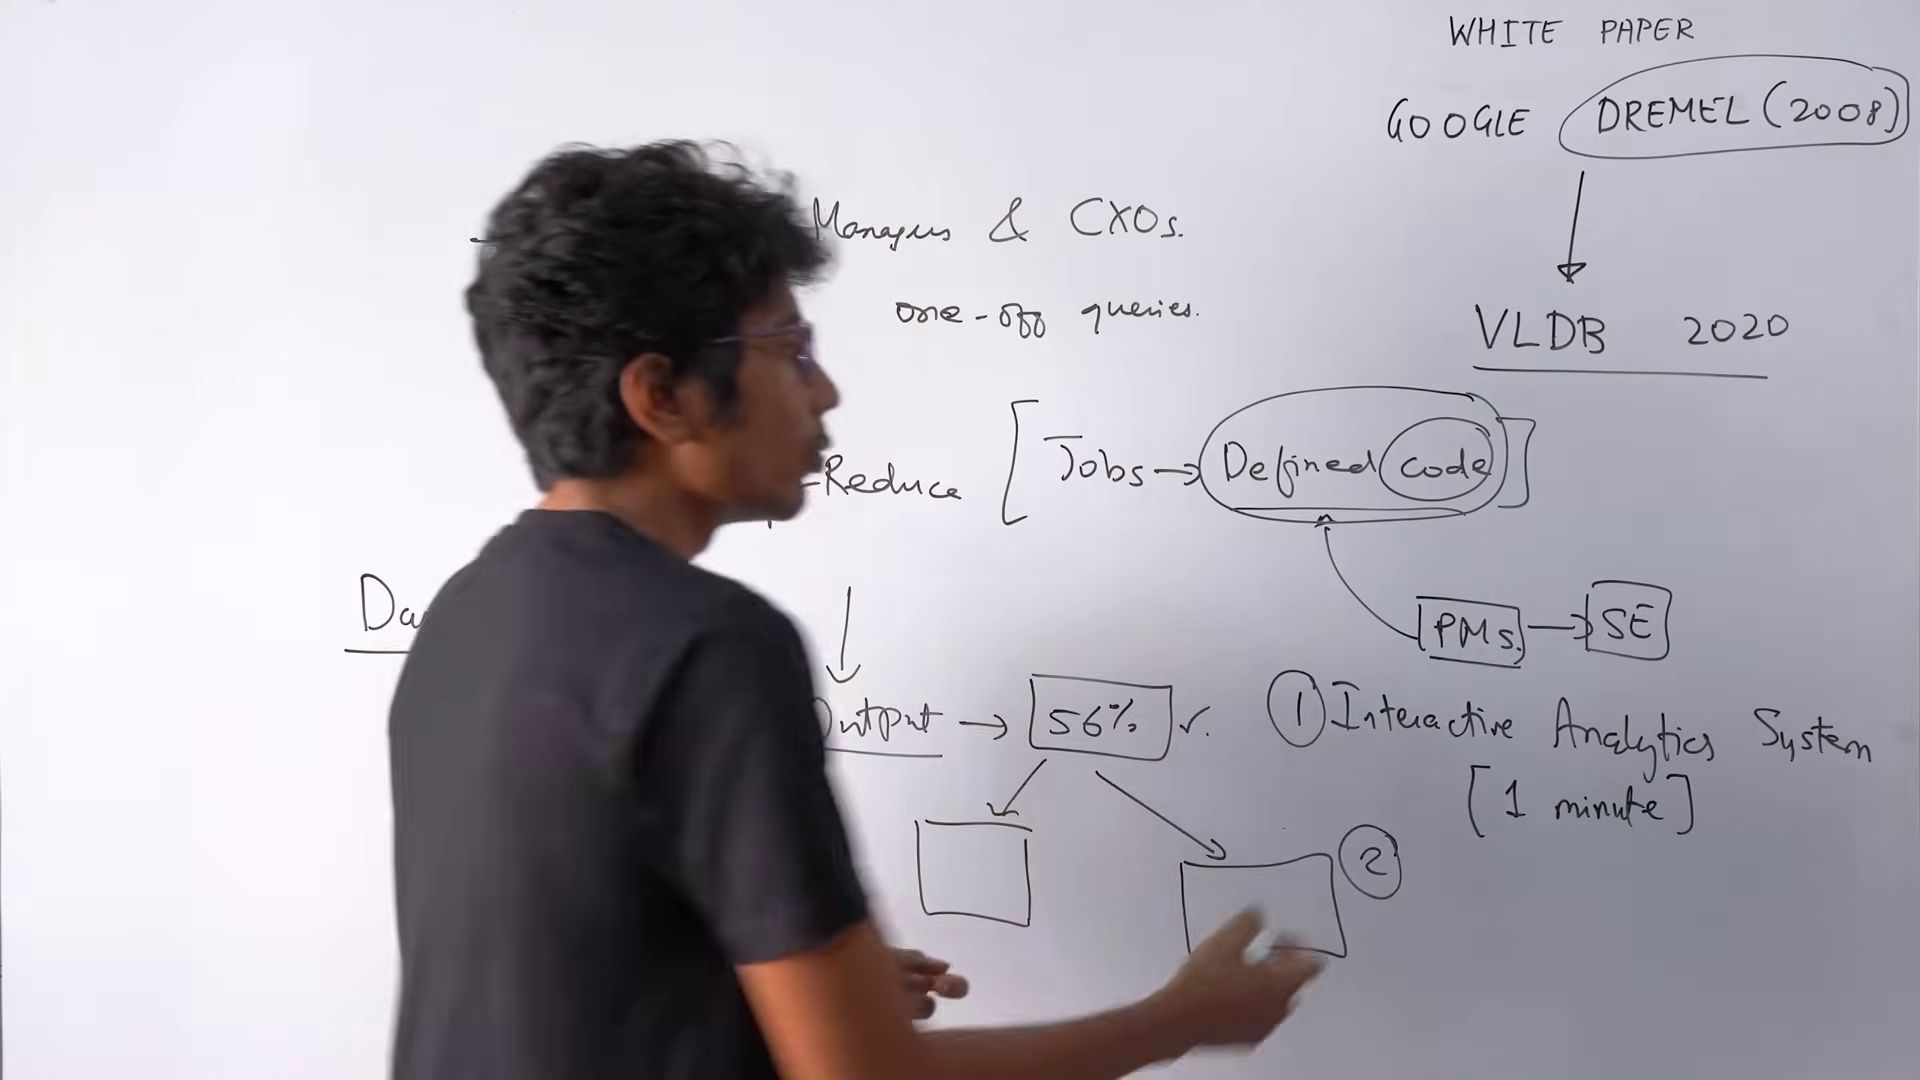 WHITE PAPER
GOOGLE DREMEL (2008)
VLDB 2020
Managers & CXOs.
one-off queries.
-Reduce [Jobs → Defined code]
PMs. → SE
Da
Output → 56% ✓.
① Interactive Analytics System
[1 minute]
②